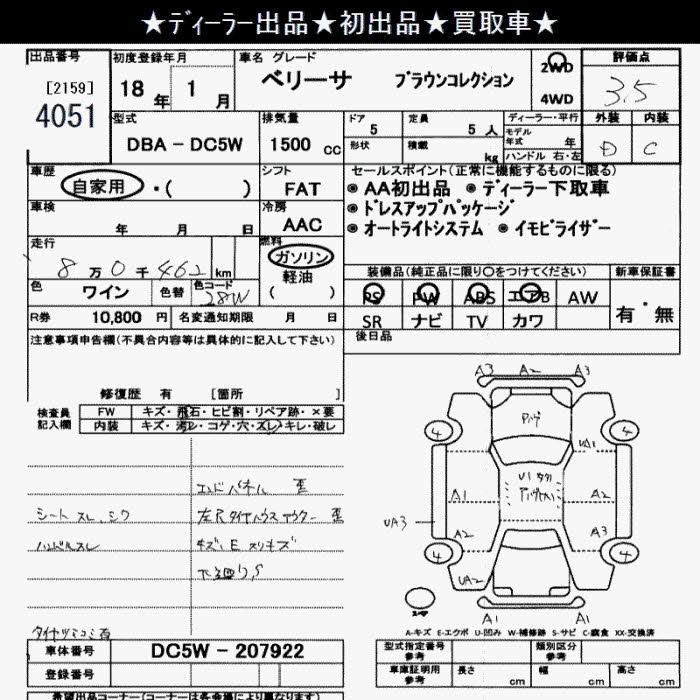 ★ディーラー出品★初出品★買取車★
出品番号 初度登録年月 車名 グレード 評価点
[2159] 18年 1月 ベリーサ ブラウンコレクション 2WD 3.5
4051 4WD
型式 排気量 ドア 定員 ディーラー・平行 外装 内装
DBA - DC5W 1500cc 5 5人 モデル年式 年 D C
形状 積載 kg ハンドル 右・左
車歴 シフト セールスポイント(正常に機能するものに限る)
自家用・( ) FAT ◉AA初出品 ◉ディーラー下取車
車検 冷房 ◉ドレスアップパッケージ
年 月 日 AAC ◉オートライトシステム ◉イモビライザー
走行 燃料
8万0千462km ガソリン 装備品(純正品に限り〇をつけてください) 新車保証書
軽油
色 ワイン 色替 色コード 28W ( ) PS PW ABS エアB AW 有・無
R券 10,800円 名変通知期限 月 日 SR ナビ TV カワ
注意事項申告欄(不具合内容等は具体的に記入して下さい) 後日品
修復歴 有 [箇所 ]
検査員 FW キズ・飛石・ヒビ割・リペア跡・×要
記入欄 内装 キズ・汚レ・コゲ・穴・スレ・キレ・破レ
A3 A2 A3
4 4
UA1
A1 A2
UA3
A2 A3
4 4
UA2
A1 A1
エンドパネル 歪
シート スレ、シワ
ハンドルスレ
キズ、E スリキズ
下廻りS
A-キズ E-エクボ U-凹み W-補修跡 S-サビ C-腐食 XX-交換済
車体番号 DC5W - 207922 型式指定番号 参考 類別区分 参考
登録番号 車庫証明用 参考 長さ cm 幅 cm 高さ cm
希望出品コーナー(コーナーは各会場により異なります)